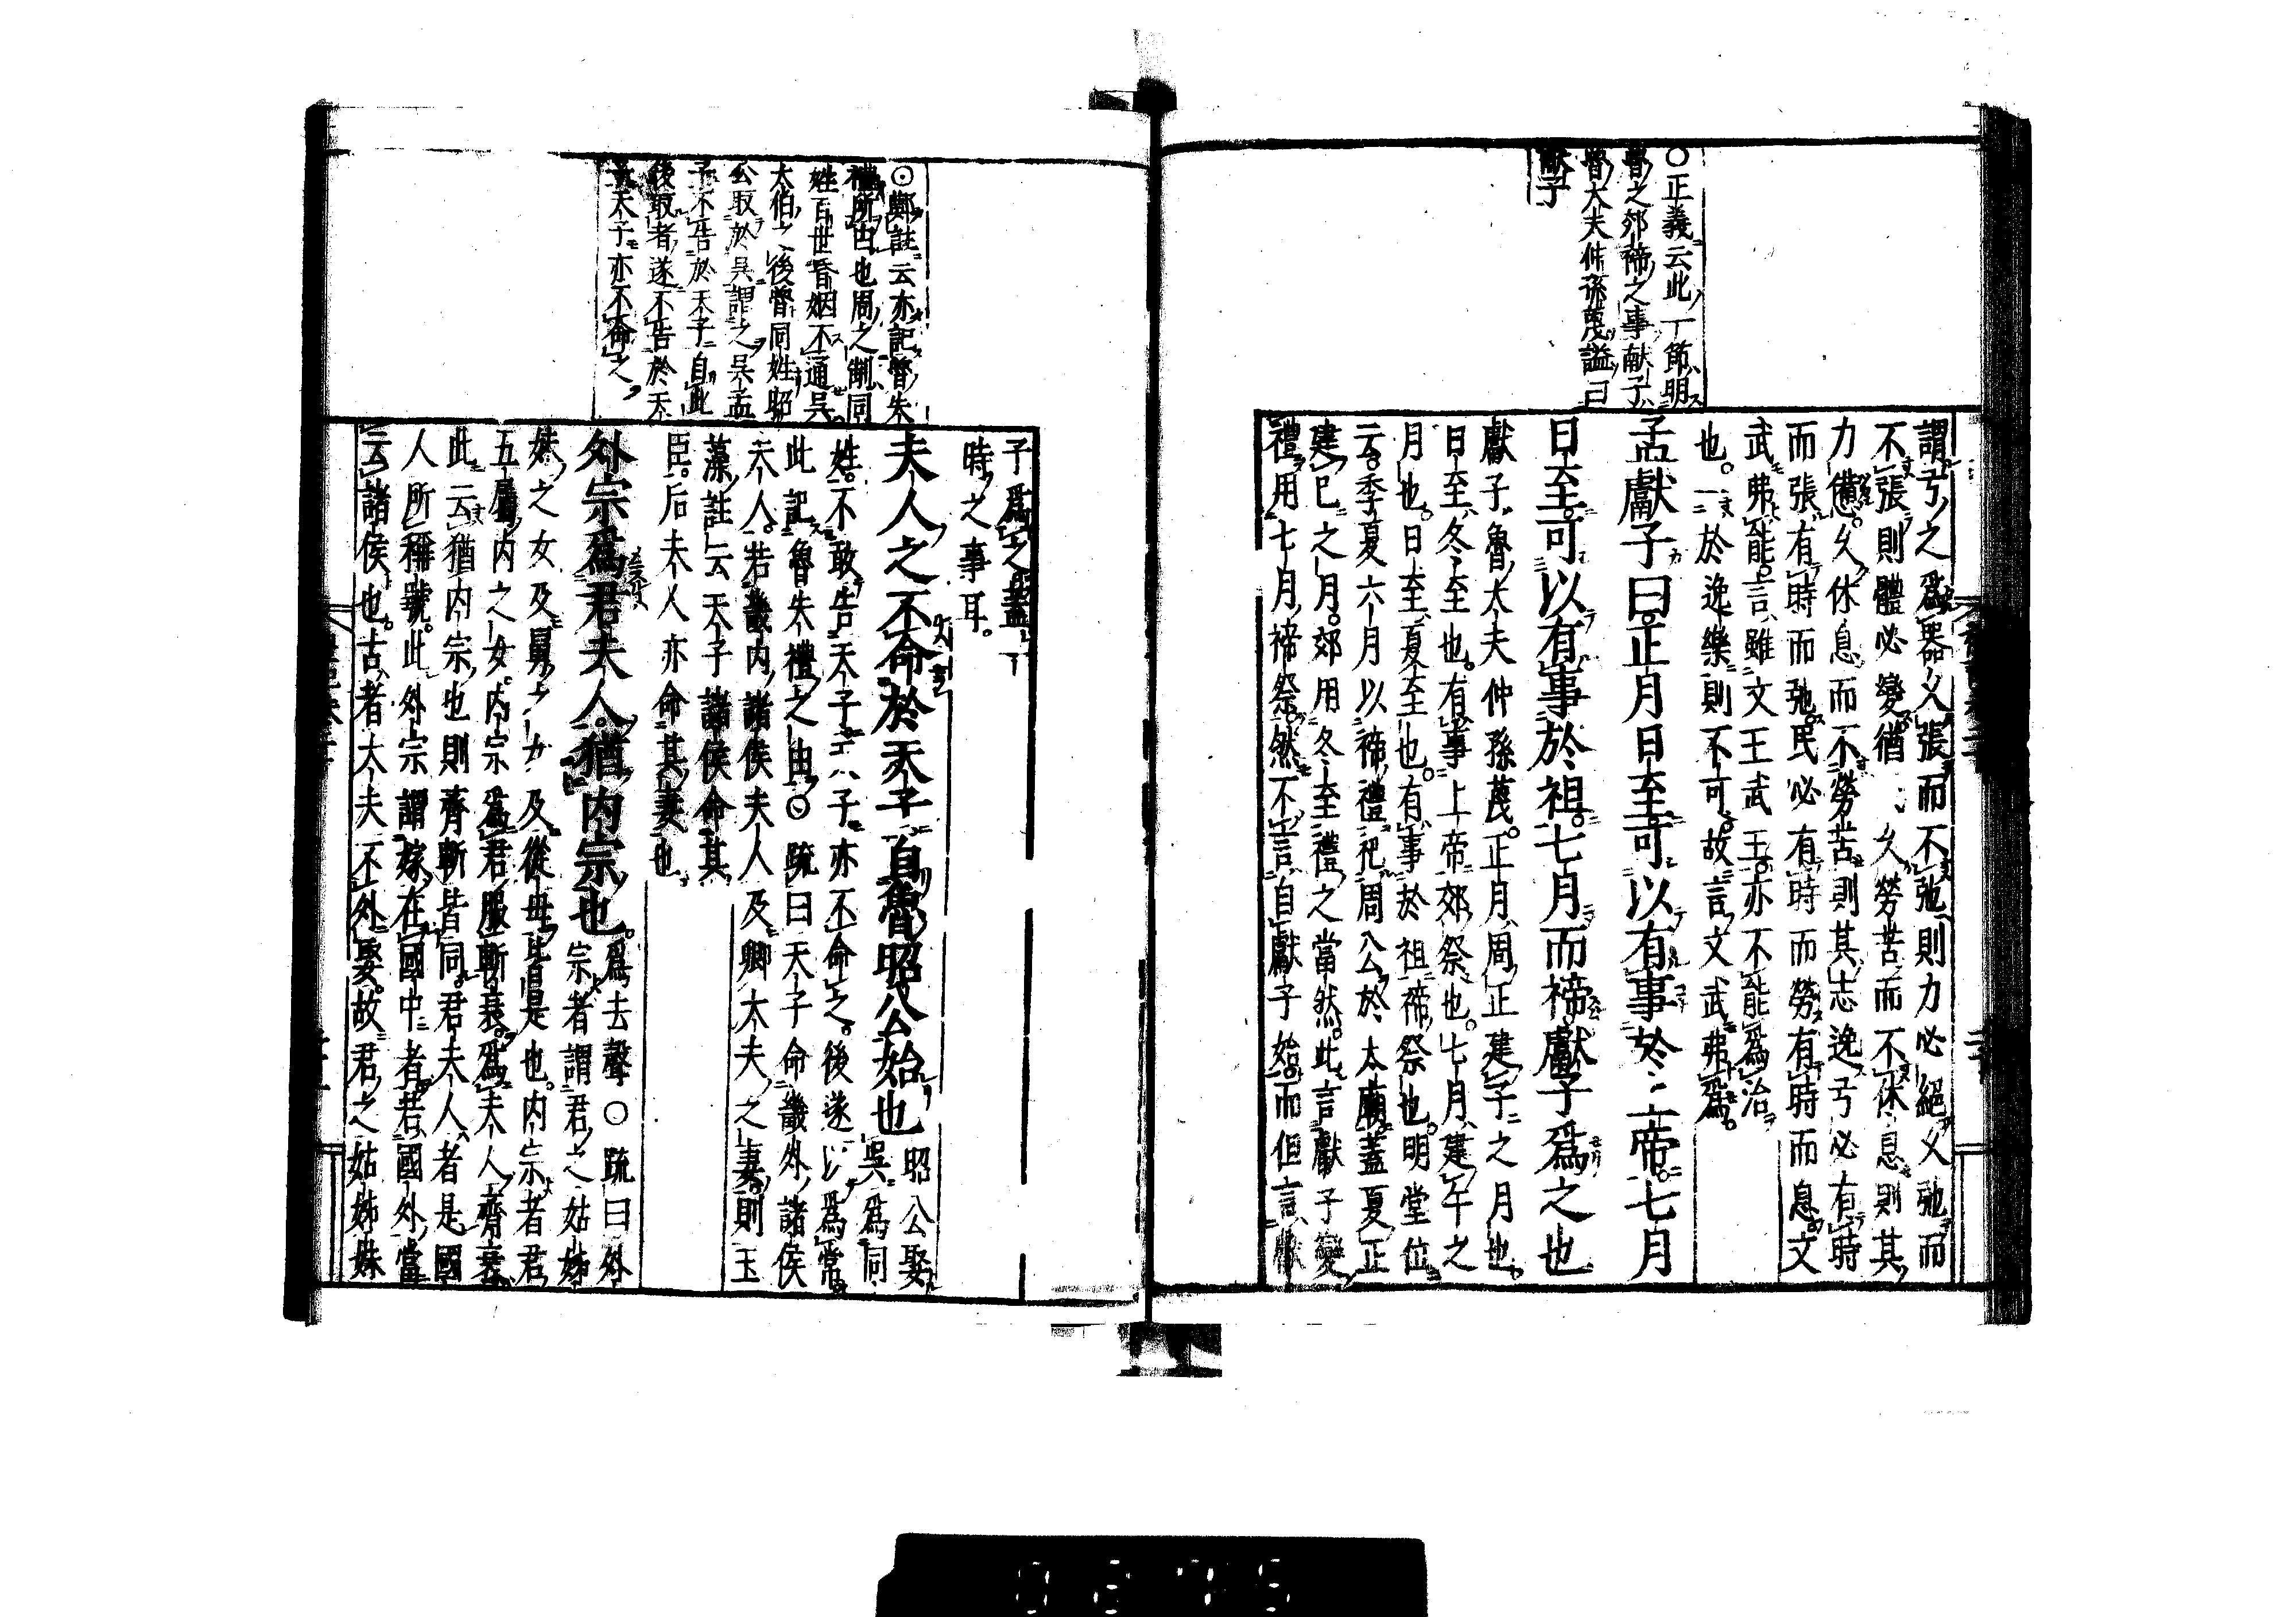 ○正義云此一節明
魯之郊禘之事献子
魯大夫仲孫蔑謚曰
献子
謂弓之爲器久張而不弛則力必絕久弛而
不張則體必變猶 久勞苦而不休息則其
力憊久休息而不勞苦則其志逸弓必有時
而張有時而弛民必有時而勞有時而息文
武弗能言雖文王武王亦不能爲治
也一於逸樂則不可故言文武弗爲
孟獻子曰正月日至可以有事於上帝七月
日至可以有事於祖七月而禘獻子爲之也
獻子魯大夫仲孫蔑正月周正建子之月也
日至冬至也有事上帝郊祭也七月建午之
月也日至夏至也有事於祖禘祭也明堂位
云季夏六月以禘禮祀周公於太廟蓋夏正
建巳之月郊用冬至禮之當然此言獻子變
禮用七月禘祭然不言自獻子始而但言獻
⊙鄭註云亦記魯失
禮所由也周之制同
姓百世昏姻不通吴
太伯之後魯同姓昭
公取於吴謂之吴孟
子不告於天子自此
後取者遂不告於天
子天子亦不命之
子爲之蓋一
時之事耳
夫人之不命於天子自魯昭公始也
昭公娶
吴爲同
姓不敢告天子天子亦不命之後遂以爲常
此記魯失禮之由○疏曰天子命畿外諸侯
夫人若畿内諸侯夫人及卿大夫之妻則玉
藻註云天子諸侯命其
臣后夫人亦命其妻也
外宗爲君夫人猶内宗也
爲去聲○疏曰外
宗者謂君之姑姊
妹之女及舅之女及從母皆是也内宗者君
五屬内之女内宗爲君服斬衰爲夫人齊衰
此云猶内宗也則齊斬皆同君夫人者是國
人所稱號此外宗謂嫁在國中者若國外當
云諸侯也古者大夫不外娶故君之姑姊妹